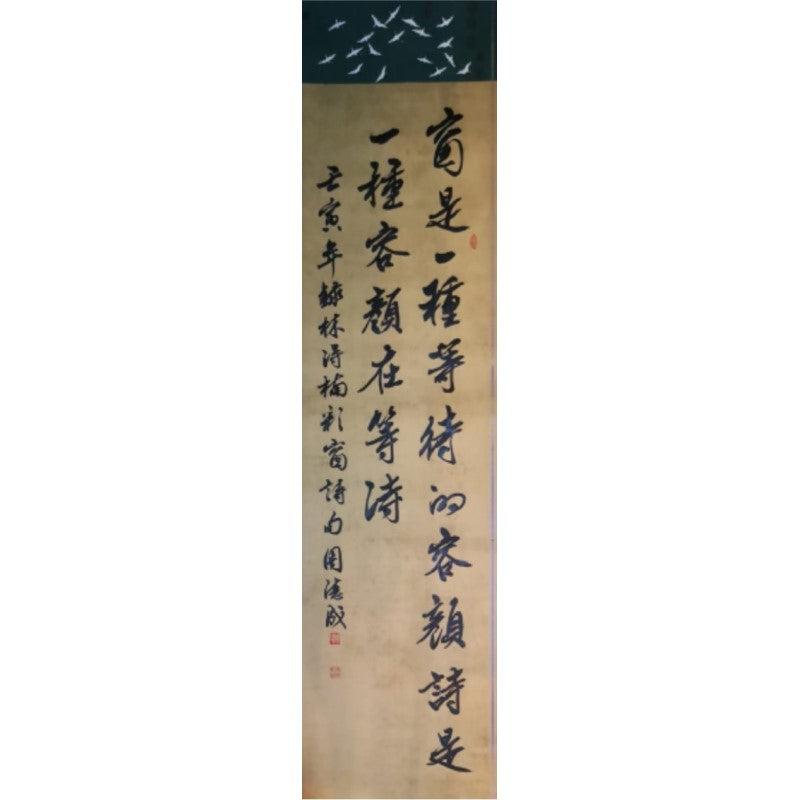 窗是一種等待的容顏詩是
一種容顏在等待
壬寅年錄林得楠彩窗詩句周德成